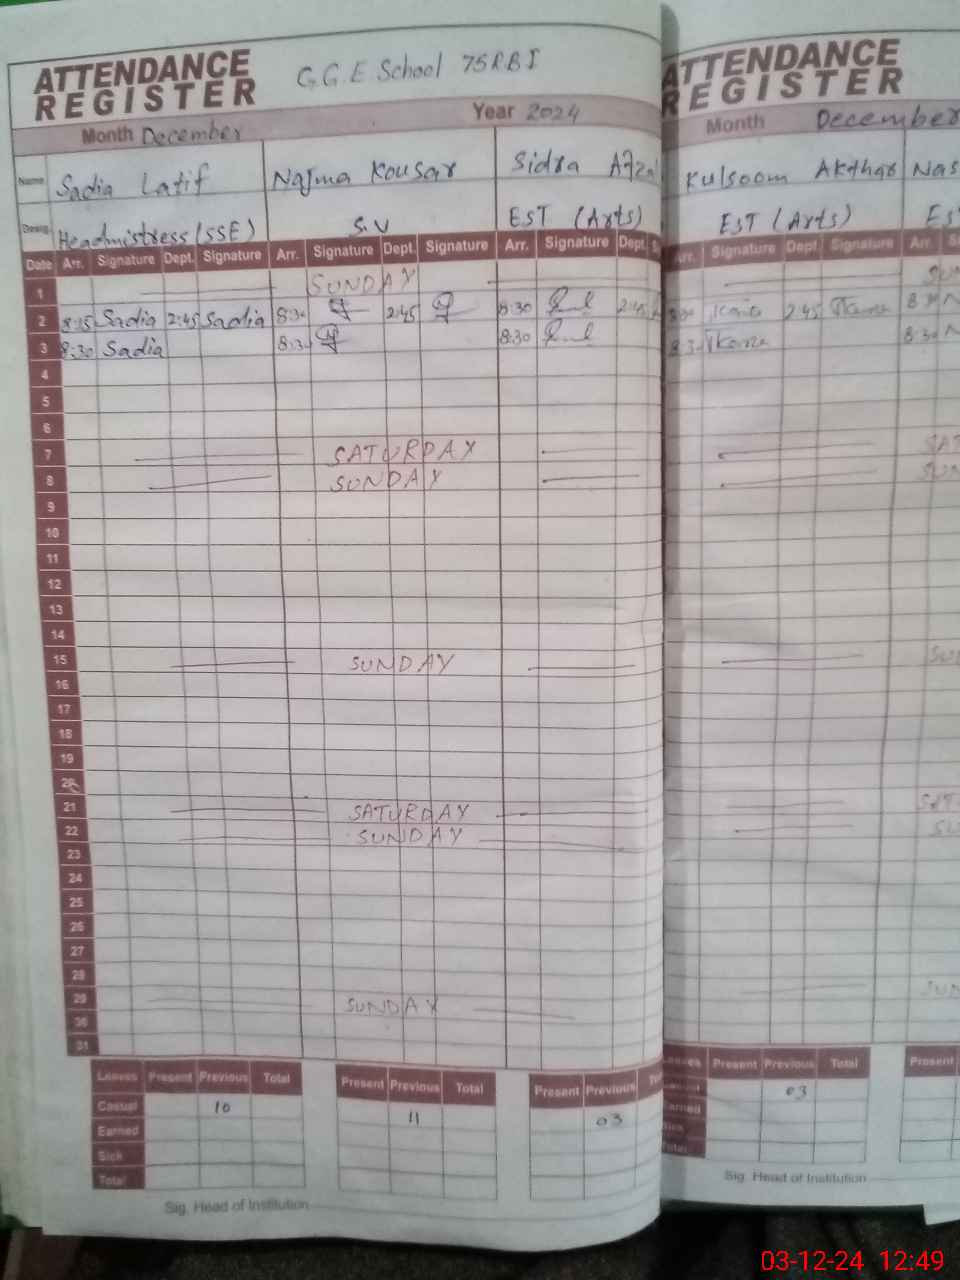 ATTENDANCE
REGISTER
G.G.E School 75RBI
Month December
Year 2024
Name Sadia Latif Najma Kousar Sidra
Desig. Headmistress (SSE) S.V EST (Arts)
Date Arr. Signature Dept. Signature Arr. Signature Dept. Signature Arr. Signature Dept.
1 SUNDAY
2 8:15 Sadia 2:45 Sadia 8:30 2:45 8:30 2:45
3 8:30 Sadia 8:30 8:30
4
5
6
7 SATURDAY
8 SUNDAY
9
10
11
12
13
14
15 SUNDAY
16
17
18
19
20
21 SATURDAY
22 SUNDAY
23
24
25
26
27
28
29 SUNDAY
30
31
Leaves Present Previous Total Present Previous Total Present Previous
Casual 10 11 03
Earned
Sick
Total
Sig. Head of Institution
ATTENDANCE
REGISTER
Month December
Kulsoom Akthar
EST (Arts)
Arr. Signature Dept. Signature Arr.
2:45
Leaves Present Previous Total Present
03
Earned
Sick
Total
Sig. Head of Institution
03-12-24 12:49